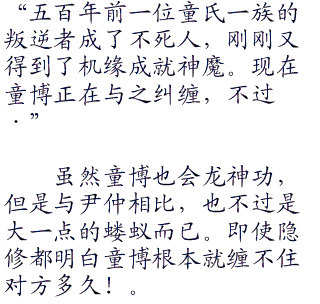 “五百年前一位童氏一族的
叛逆者成了不死人，刚刚又
得到了机缘成就神魔。现在
童博正在与之纠缠，不过
·”
虽然童博也会龙神功，
但是与尹仲相比，也不过是
大一点的蝼蚁而已。即使隐
修都明白童博根本就缠不住
对方多久！。